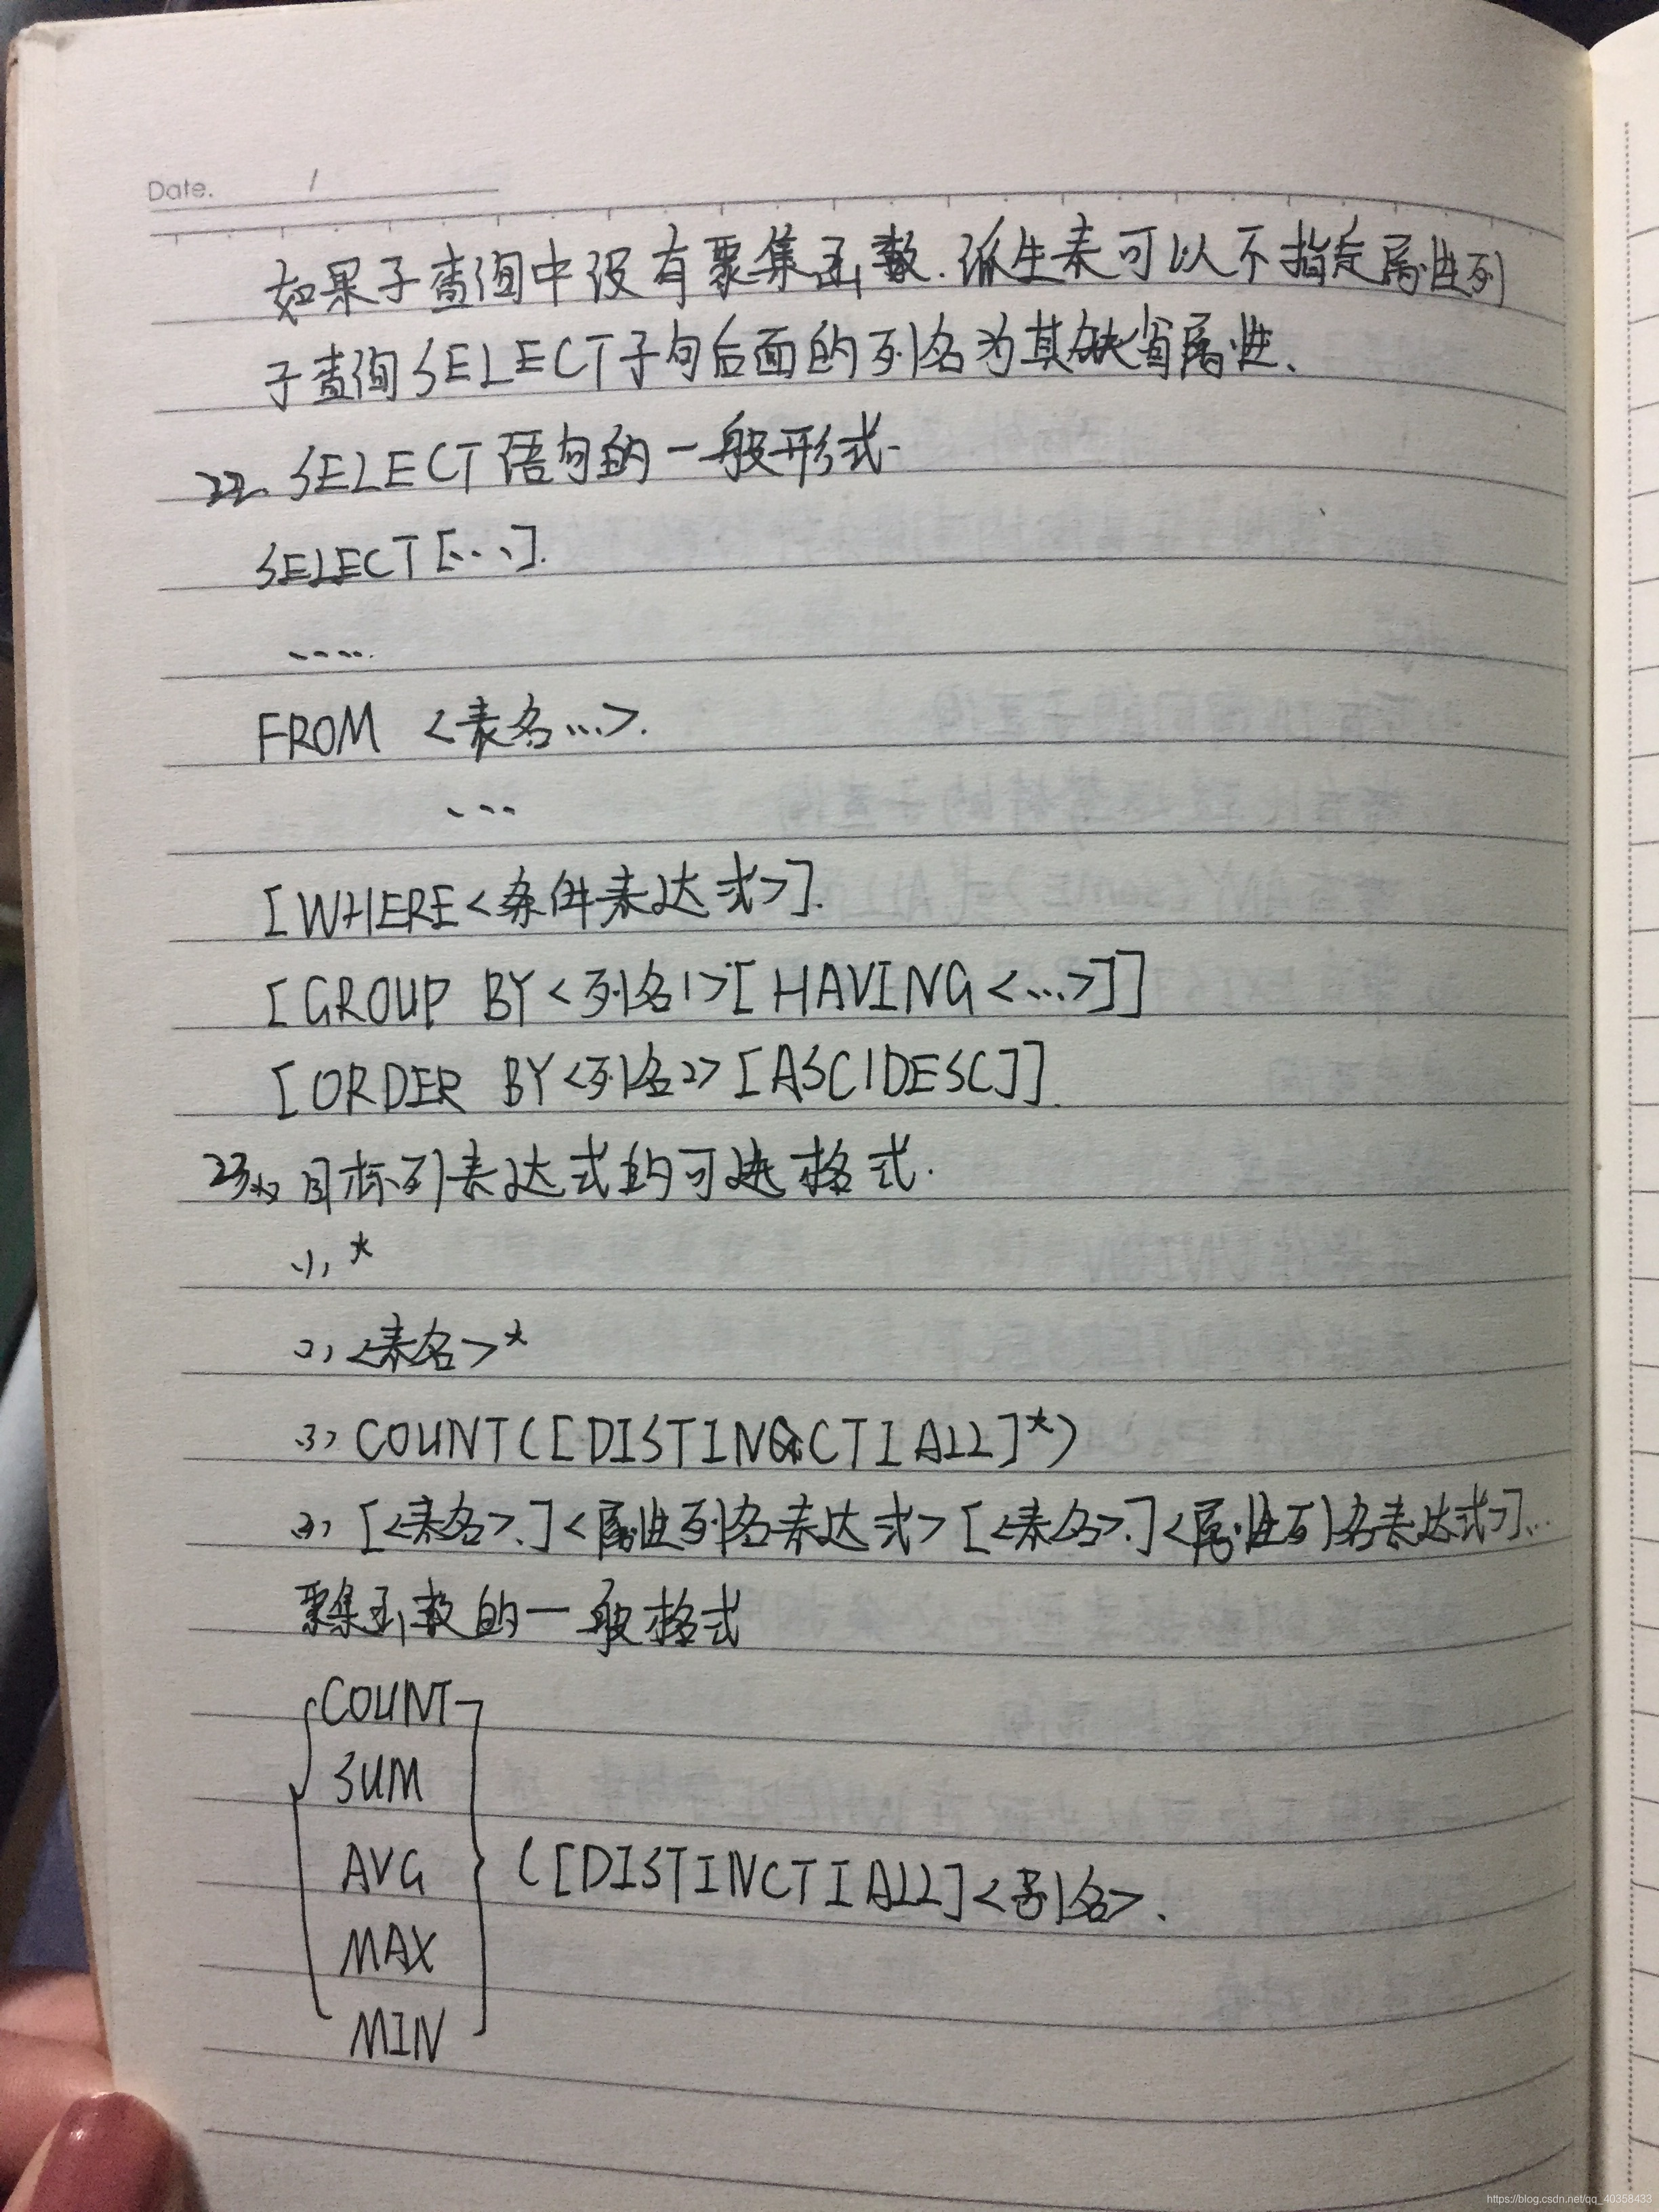 Date. /
如果子查询中没有聚集函数.派生表可以不指定属性列
子查询SELECT子句后面的列名为其缺省属性、
22. SELECT语句的一般形式.
SELECT[...].
.....
FROM <表名...>.
...
[WHERE<条件表达式>].
[GROUP BY<列名1>[HAVING<...>]]
[ORDER BY<列名2>[ASC|DESC]].
23. 目标列表达式的可选格式.
(1) *
(2) <表名>*
(3) COUNT([DISTINCT|ALL]*)
(4) [<表名>.]<属性列名表达式>[<表名>.]<属性列名表达式>]...
聚集函数的一般格式
COUNT
SUM
AVG ([DISTINCT|ALL]<列名>.
MAX
MIN
https://blog.csdn.net/qq_40358433